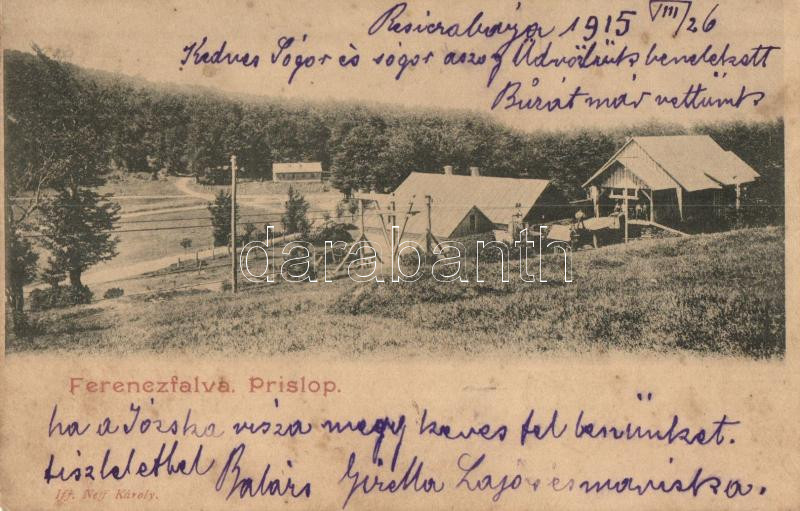 Resiczabánya 1915 VIII/26
Kedves Sógor és sógor aszog Üdvözlük beneteket
Búzát már vettünk
darabanth
Ferenczfalva. Prislop.
ha a Józska visza megy keves tel benünket.
tiszletettel Balázs Lajos és mariska.
Ifj. Neff Károly.